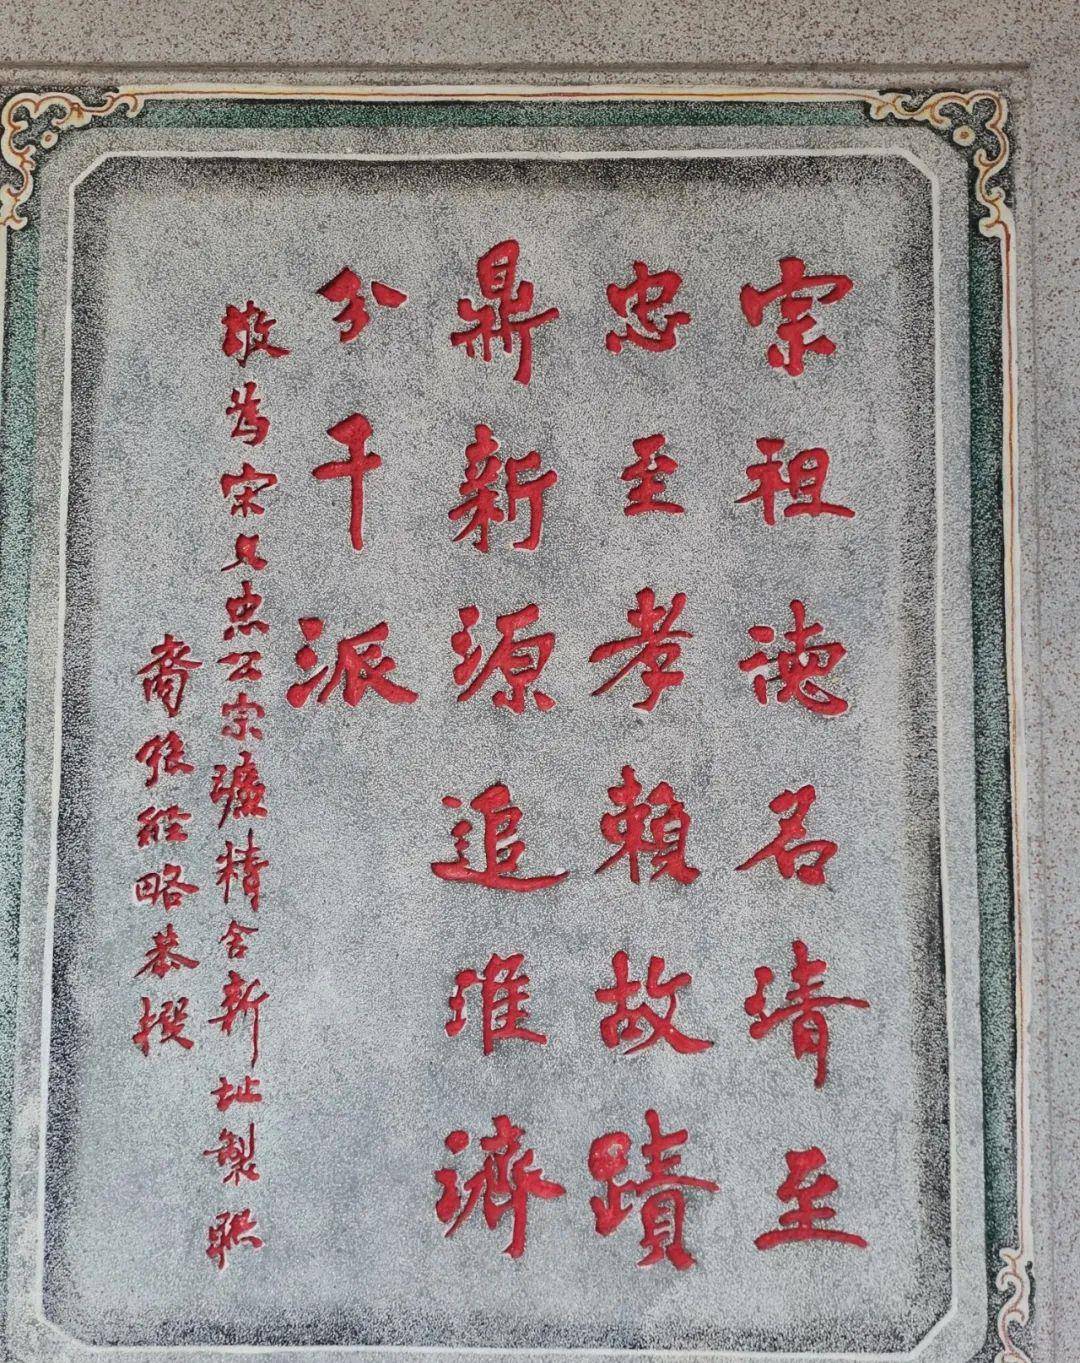 宗祖德名清至
忠至孝賴故蹟
鼎新源追淮濟
分千派
敬為宋文忠公宗精舍新址製聯
裔張經略恭撰